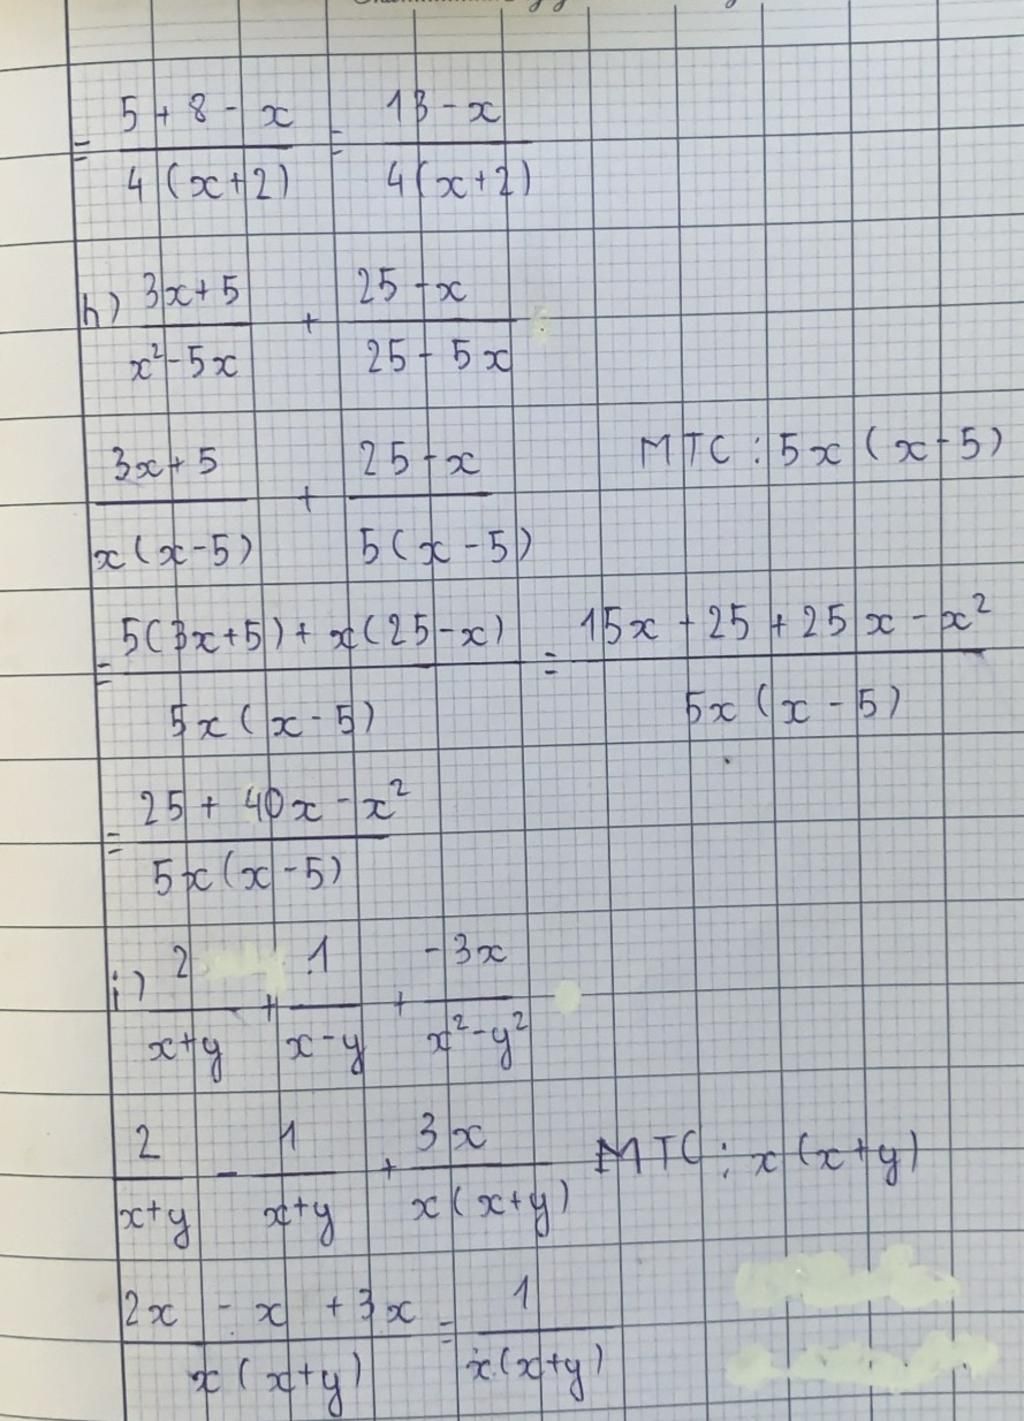 = (5 + 8 - x) / (4(x+2)) = (13 - x) / (4(x+2))
h) (3x+5) / (x² - 5x) + (25 - x) / (25 - 5x)
(3x+5) / (x(x-5)) + (25 - x) / (5(x-5)) MTC : 5x(x-5)
= (5(3x+5) + x(25-x)) / (5x(x-5)) = (15x + 25 + 25x - x²) / (5x(x-5))
= (25 + 40x - x²) / (5x(x-5))
i) 2 / (x+y) + 1 / (x-y) + (-3x) / (x² - y²)
2 / (x+y) - 1 / (x+y) + 3x / (x(x+y)) MTC : x(x+y)
(2x - x + 3x) / (x(x+y)) = 1 / (x(x+y))